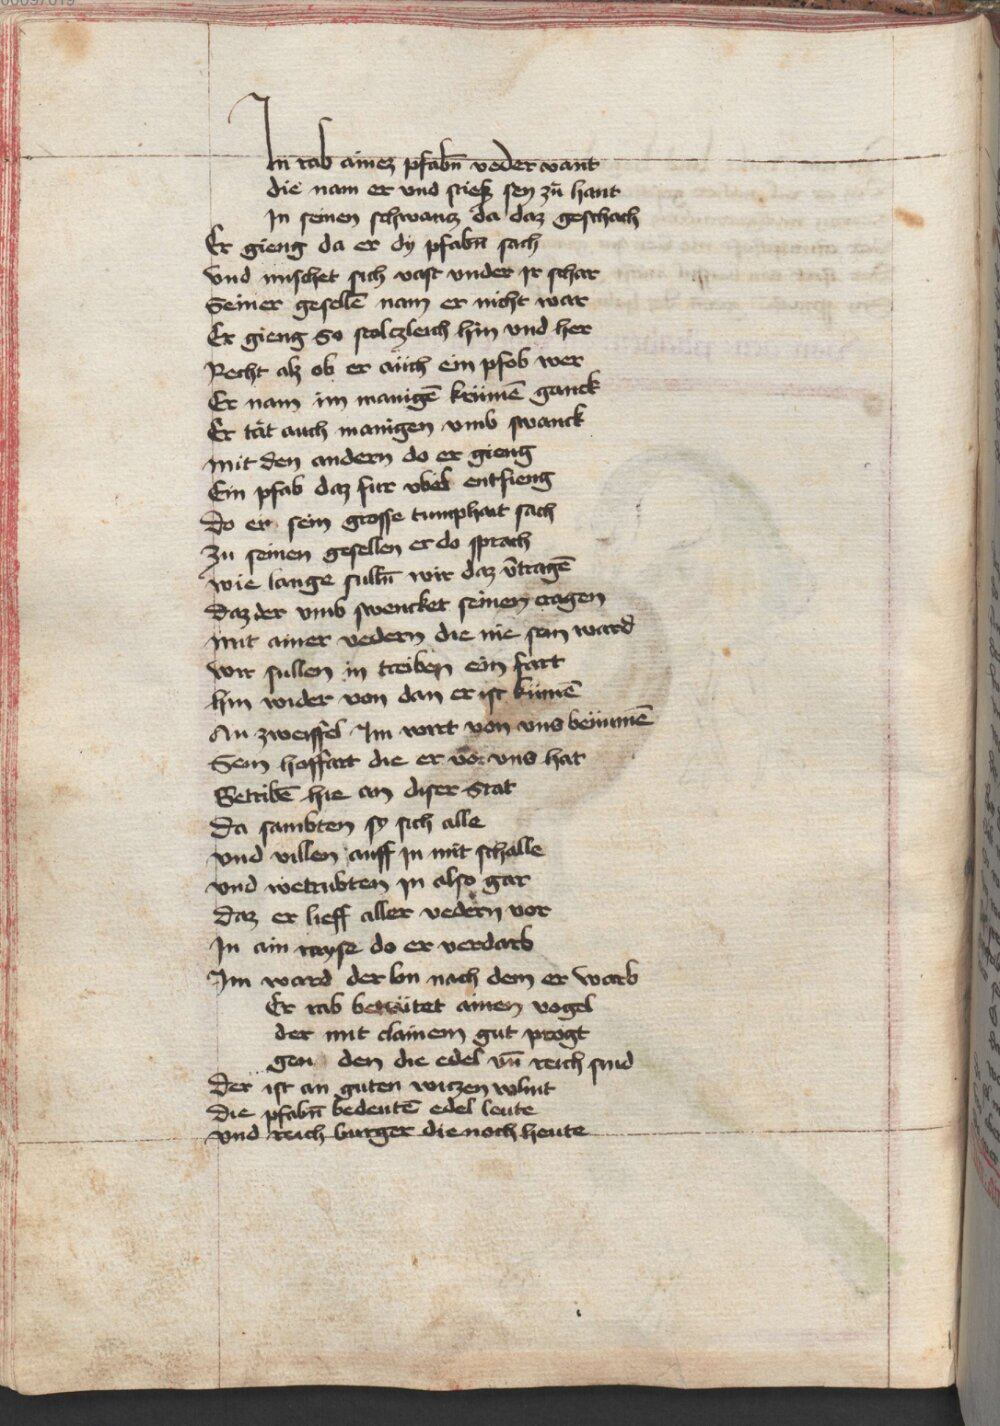 00097019
In rab ainez pfabn̄ veder vant
die nam er vnd stiesz sey zū hant
In seinen schwancz da daz geschach
Er gieng da er dy pfabn̄ sach
vnd mischet sich vast vnder ir schar
Seiner gesellē nam er nicht war
Er gieng so stolczleich hin vnd her
Recht alz ob er aüch ein pfob wer
Er nam im manigē krümē ganck
Er tät auch manigen vmb swanck
mit den andern do er gieng
Ein pfab daz fur vbel entfieng
Do er sein grosse tumphait sach
zu seinen gesellen er do sprach
wie lange sulln̄ wir daz v̄tragē
Daz der vmb swencket seinen cragen
mit ainer vedern die nie sein ward
wir sullen in treiben ein fart
hin wider von dan er ist kümē
An zweiffel Im wirt von vns benümē
Sein hoffart die er vor vns hat
Getribē hie an diser Stat
Da sambten sy sich alle
vnd villen auff in mit schalle
vnd wetrubten in also gar
Daz er lieff aller vedern vor
In ain rayse do er verdarb
Im ward der lon nach dem er warb
Er rab betiütet ainen vogel
der mit clainem gut progt
gen den die edel vn̄ reich sind
Der ist an guten wiczen plint
die pfabn̄ bedeutē edel leute
vnd reich burger die noch heute